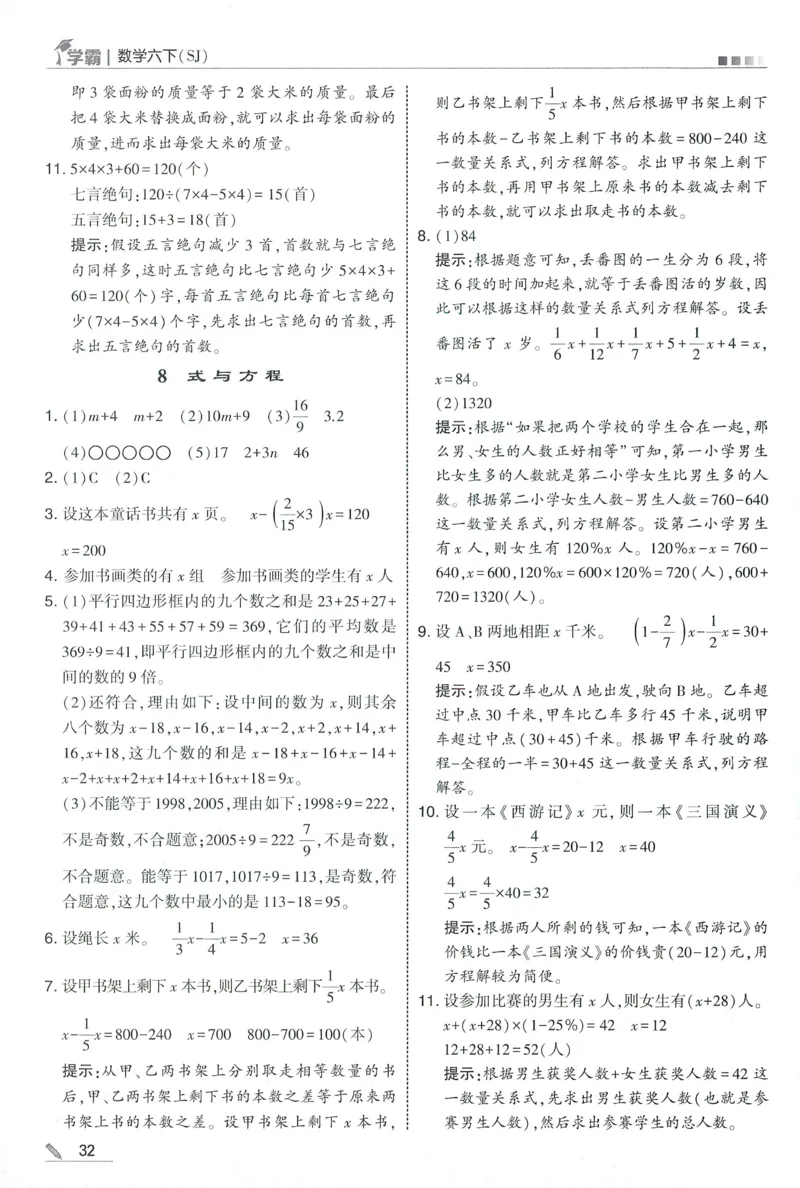 学霸 | 数学六下(SJ)
即 3 袋面粉的质量等于 2 袋大米的质量。最后
把 4 袋大米替换成面粉,就可以求出每袋面粉的
质量,进而求出每袋大米的质量。
11. 5×4×3+60=120(个)
七言绝句:120÷(7×4-5×4)=15(首)
五言绝句:15+3=18(首)
提示:假设五言绝句减少 3 首,首数就与七言绝
句同样多,这时五言绝句比七言绝句少 5×4×3+
60=120(个)字,每首五言绝句比每首七言绝句
少(7×4-5×4)个字,先求出七言绝句的首数,再
求出五言绝句的首数。
8 式与方程
1. (1)m+4 m+2 (2)10m+9 (3)16/9 3.2
(4)○○○○○ (5)17 2+3n 46
2. (1)C (2)C
3. 设这本童话书共有 x 页。 x-(2/15×3)x=120
x=200
4. 参加书画类的有 x 组 参加书画类的学生有 x 人
5. (1)平行四边形框内的九个数之和是 23+25+27+
39+41+43+55+57+59=369,它们的平均数是
369÷9=41,即平行四边形框内的九个数之和是中
间的数的 9 倍。
(2)还符合,理由如下:设中间的数为 x,则其余
八个数为 x-18,x-16,x-14,x-2,x+2,x+14,x+
16,x+18,这九个数的和是 x-18+x-16+x-14+
x-2+x+x+2+x+14+x+16+x+18=9x。
(3)不能等于 1998,2005,理由如下:1998÷9=222,
不是奇数,不合题意;2005÷9=222 7/9,不是奇数,
不合题意。能等于 1017,1017÷9=113,是奇数,符
合题意,这九个数中最小的是 113-18=95。
6. 设绳长 x 米。 1/3x-1/4x=5-2 x=36
7. 设甲书架上剩下 x 本书,则乙书架上剩下1/5x 本书。
x-1/5x=800-240 x=700 800-700=100(本)
提示:从甲、乙两书架上分别取走相等数量的书
后,甲、乙两书架上剩下书的本数之差等于原来两
书架上书的本数之差。设甲书架上剩下 x 本书,
则乙书架上剩下1/5x 本书,然后根据甲书架上剩下
书的本数-乙书架上剩下书的本数=800-240 这
一数量关系式,列方程解答。求出甲书架上剩下
书的本数,再用甲书架上原来书的本数减去剩下
书的本数,就可以求出取走书的本数。
8. (1)84
提示:根据题意可知,丢番图的一生分为 6 段,将
这 6 段的时间加起来,就等于丢番图活的岁数,因
此可以根据这样的数量关系式列方程解答。设丢
番图活了 x 岁。1/6x+1/12x+1/7x+5+1/2x+4=x,
x=84。
(2)1320
提示:根据“如果把两个学校的学生合在一起,那
么男、女生的人数正好相等”可知,第一小学男生
比女生多的人数就是第二小学女生比男生多的人
数。根据第二小学女生人数-男生人数=760-640
这一数量关系式,列方程解答。设第二小学男生
有 x 人,则女生有 120%x 人。120%x-x=760-
640,x=600,120%x=600×120%=720(人),600+
720=1320(人)。
9. 设 A、B 两地相距 x 千米。 (1-2/7)x-1/2x=30+
45 x=350
提示:假设乙车也从 A 地出发,驶向 B 地。乙车超
过中点 30 千米,甲车比乙车多行 45 千米,说明甲
车超过中点(30+45)千米。根据甲车行驶的路
程-全程的一半=30+45 这一数量关系式,列方程
解答。
10. 设一本《西游记》x 元,则一本《三国演义》
4/5x 元。 x-4/5x=20-12 x=40
4/5x=4/5×40=32
提示:根据两人所剩的钱可知,一本《西游记》的
价钱比一本《三国演义》的价钱贵(20-12)元,用
方程解较为简便。
11. 设参加比赛的男生有 x 人,则女生有(x+28)人。
x+(x+28)×(1-25%)=42 x=12
12+28+12=52(人)
提示:根据男生获奖人数+女生获奖人数=42 这
一数量关系式,先求出男生获奖人数(也就是参
赛男生人数),然后求出参赛学生的总人数。
32